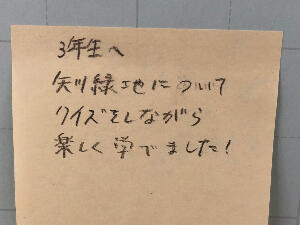 3年生へ
矢川緑地について
クイズをしながら
楽しく学でました!